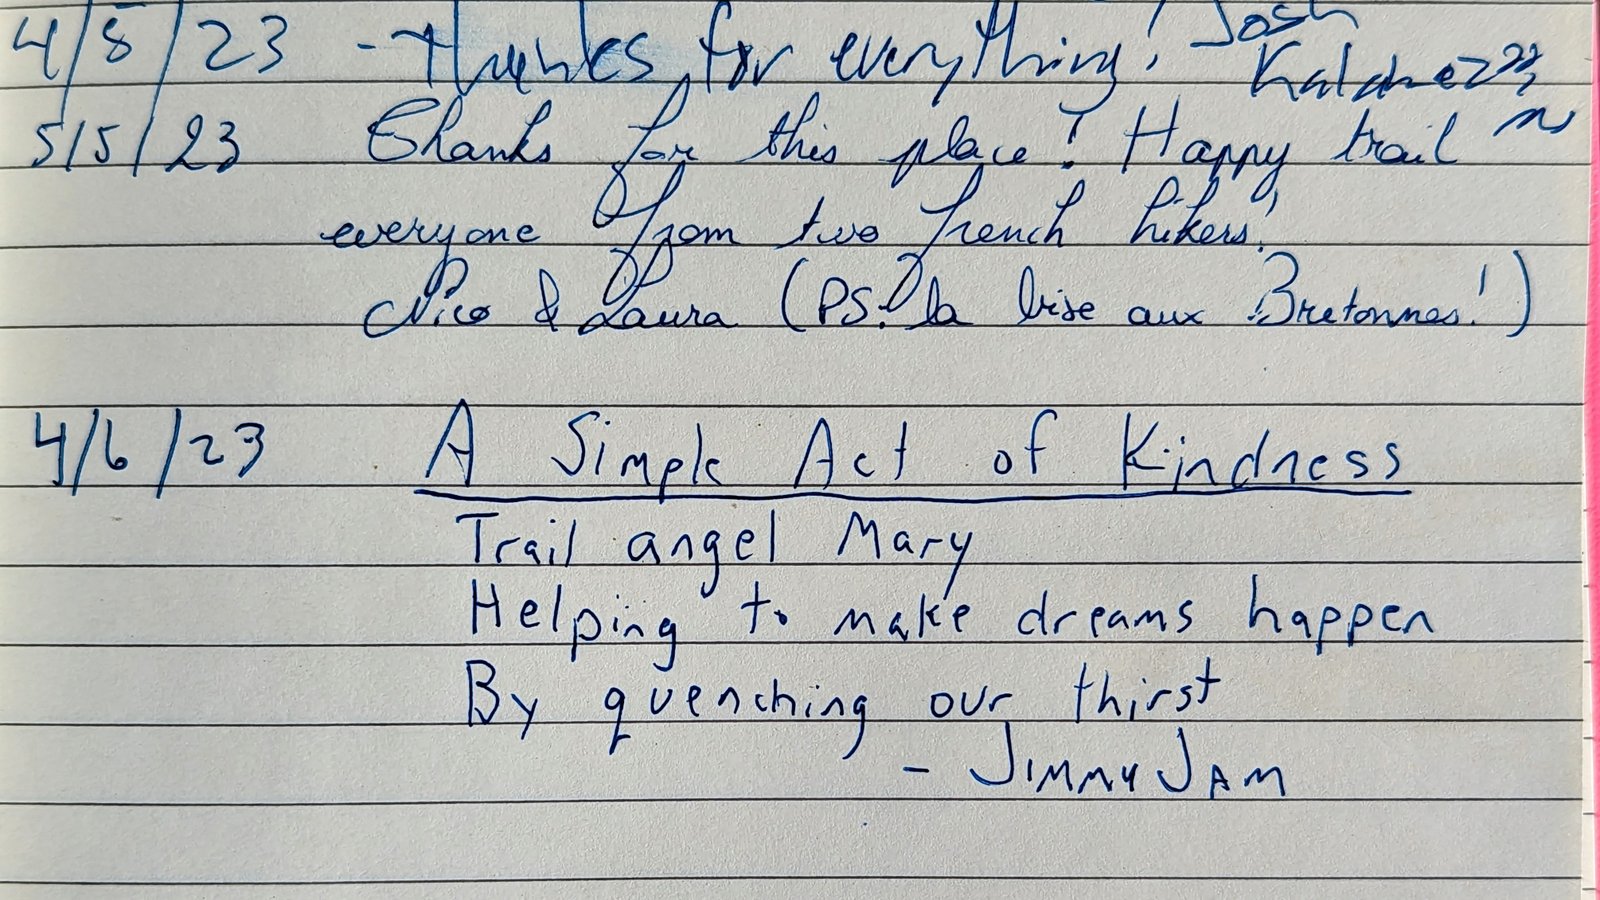 4/5/23 - thanks for everything! Josh
5/5/23 Thanks for this place! Happy trail
everyone from two french hikers!
Nico & Laura (PS: la bise aux Bretonnes!)
4/6/23 A Simple Act of Kindness
Trail angel Mary
Helping to make dreams happen
By quenching our thirst
- JIMMY JAM